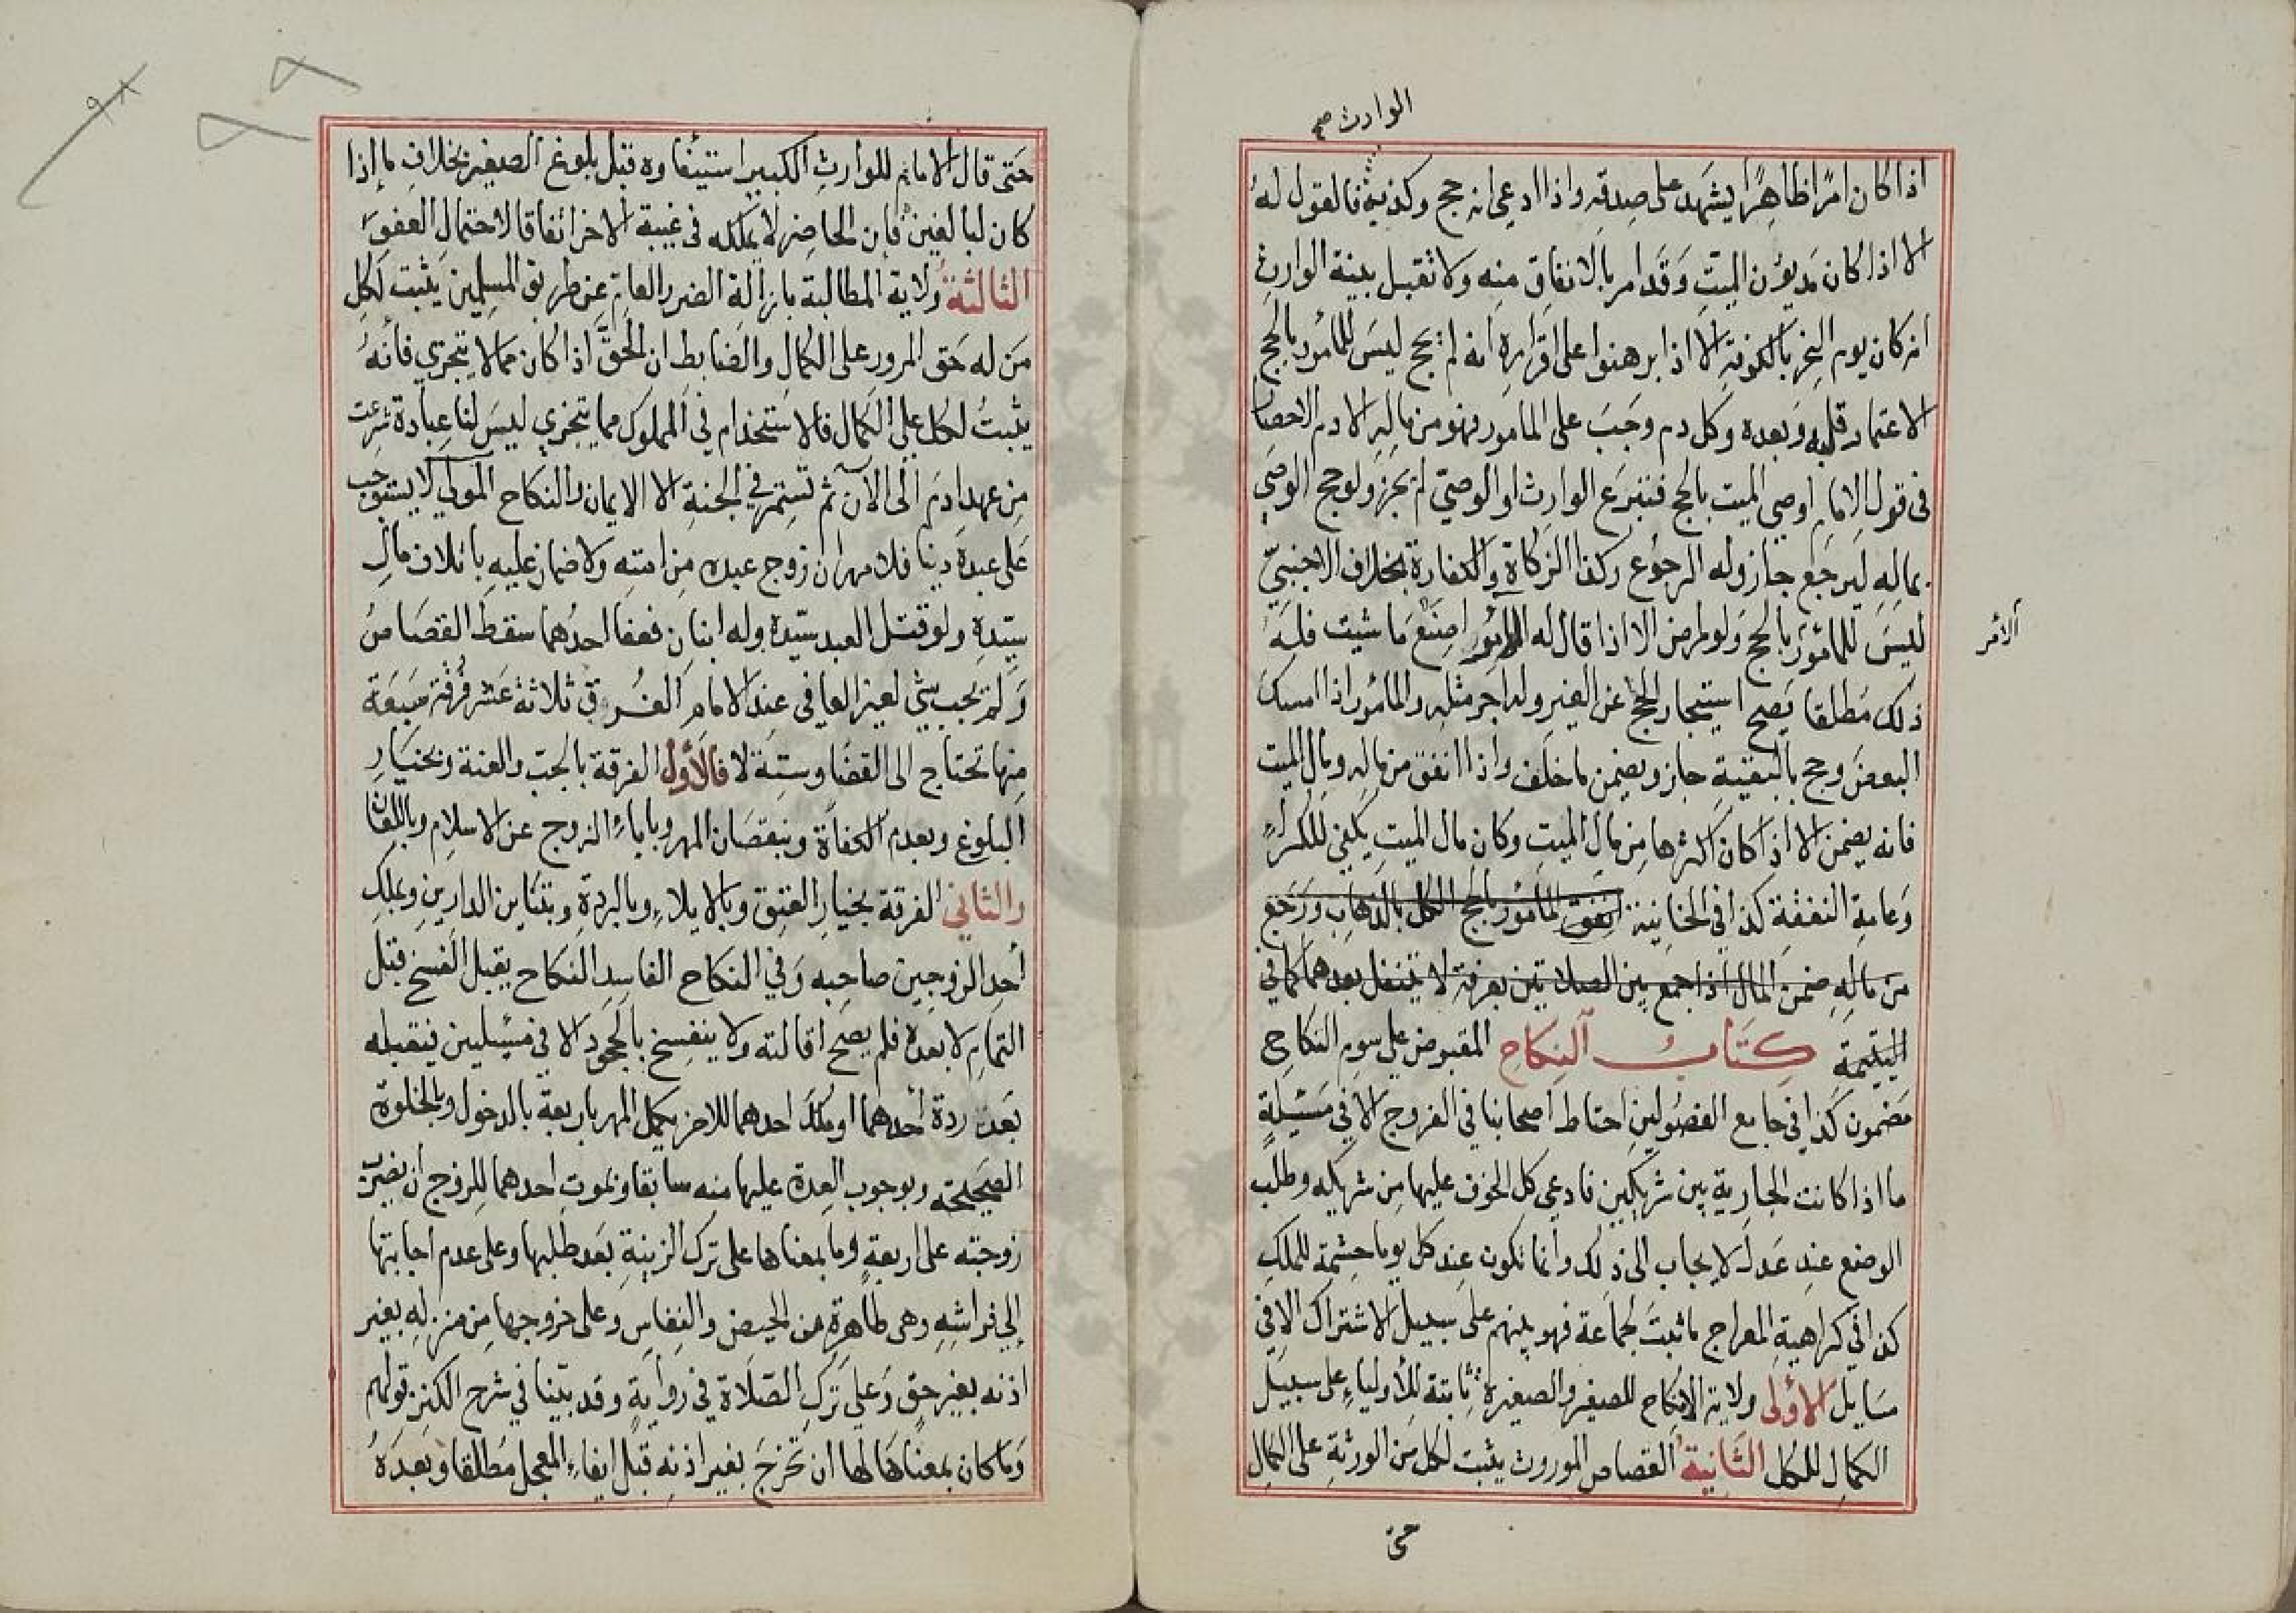 الوارث صح
اذا كان امرًا ظاهِرًا يشهد على صِدقه واذا ادعى انه حج وكذبه فالقول له
الا اذا كان مديون الميت وَقد امر بالانفاق منه ولا تقبل بينة الوارث
انه كان يوم النحر بالكوفة الا اذا برهنوا على اقراره انه لم يحج ليس للمأمور بالحج
الاعتمار قبله وبعده وكل دم وجَبَ على المامور فهو من ماله الا دم الاحصار
فى قول الامام اوصى الميت بالحج فتبرع الوارث او الوصيّ لم يجز ولو حج الوصى
بماله ليرجع جاز وله الرجوع وكذا الزكاة والكفارة بخلاف الاجنبيّ
ليسَ للمأمور بالحج ولو لمرض الا اذا قال له اصنع ما شيت فله
الآمر
ذلك مطلقا يصح استيجار الحج عن الغير وله اجر مثله والمأمور اذا امسك
البعض وحج بالبقية جاز ويضمن ما خلف واذا انفق من ماله ومال الميت
فانه يضمن الا اذا كان اكثرها من مال الميت وكان مال الميت يكفى للكراءِ
وَعامة النفقة كذا في الخانية انفق المأمور بالحج الكل بالذهاب ورَجَع
من ماله ضمن المال اذا جمع بين الصلاتين بعرفة لا يتنفل بعدهما كما في
اليتيمة كتاب النكاح المقبوض على سوم النكاح
مضمون كذا في جامع الفصولين احتاط اصحابنا في الفروج الا في مسئلةٍ
ما اذا كانت الجارية بين شريكين فادعى كل الخوف عليها من شريكه وطلب
الوضع عند عَدل لا يجاب الى ذلك وانما تكون عند كل يوما حشمة للملك
كذا في كراهية المعراج ما ثبت لجماعة فهو بينهم على سبيل الاشتراك الا في
مسايل الاولى ولاية الانكاح للصغير والصغيرة ثابتة للأولياءِ على سبيل
الكمال للكل الثانية القصاص الموروث يثبت لكل من الورثة على الكمال
حتى
حَتى قال الامام للوارث الكبير استيفاوه قبل بلوغ الصغير بخلاف ما اذا
كان لبالغين فان الحاضر لا يملكه فى غيبة الاخر اتفاقا لاحتمال العفو
الثالثة ولاية المطالبة بازالة الضرر العام عن طريق المسلمين يثبت لكل
من له حق المرور على الكمال والضابط ان الحقَّ اذا كان مما لا يتجزي فانه
يثبتُ لكل على الكمال فالاستخدام في المملوك مما يتجزي ليسَ لنا عِبادة شرعت
مِن عهد ادم الى الآن ثم تستمر في الجنة الا الايمان والنكاح المولى لا يستوجب
على عبده دينا فلا مهر ان زوج عبده من امته ولا ضمان عليه باتلاف مال
سيّده ولو قتل العبد سيّده وله ابنان فعفا احدُهما سقط القصَاصُ
وَلم يجب شئ لغير العافي عند الامام الفرق ثلاثة عَشر فُرقة سَبعَة
منها تحتاج الى القضا وستة لا فالأول الفرقة بالجب والعنة وبخيَارِ
البلوغ وبعدم الكفاة وبنقصان المهر وباباء الزوج عن الاسلام وباللعان
والثاني الفرقة بخيار العتق وبالايلاء وبالردة وبتباين الدارين وبملك
أحد الزوجين صاحِبه وَفي النكاح الفاسد النكاح يقبل الفسخ قبل
التمام لا بعده فلم يصح اقالته ولا ينفسخ بالجحود الا في مسئلتين فيقبله
بَعد ردة أحدهما او ملك احدهما للاخر يكمل المهر باربعة بالدخول وبالخلوة
الصحيحة وبوجوب العدة عليها منه سابقا وبموت احدهما للزوج ان يضرب
زوجته على اربعةٍ وما بمعناها على ترك الزينةِ بَعد طلبها وعلى عدم اجابتها
إلى فراشِه وهى طاهرة من الحيض والنفاس وعلى خروجها من منزله بغير
اذنه بغير حق وَعلى ترَك الصَلاة في رواية وقد بيّنا في شرح الكنز قولهم
وَما كان بمعناهَا لها ان تخرجَ بغير اذنه قبل ايفاءِ المعجل مطلقا وَبعدَهُ